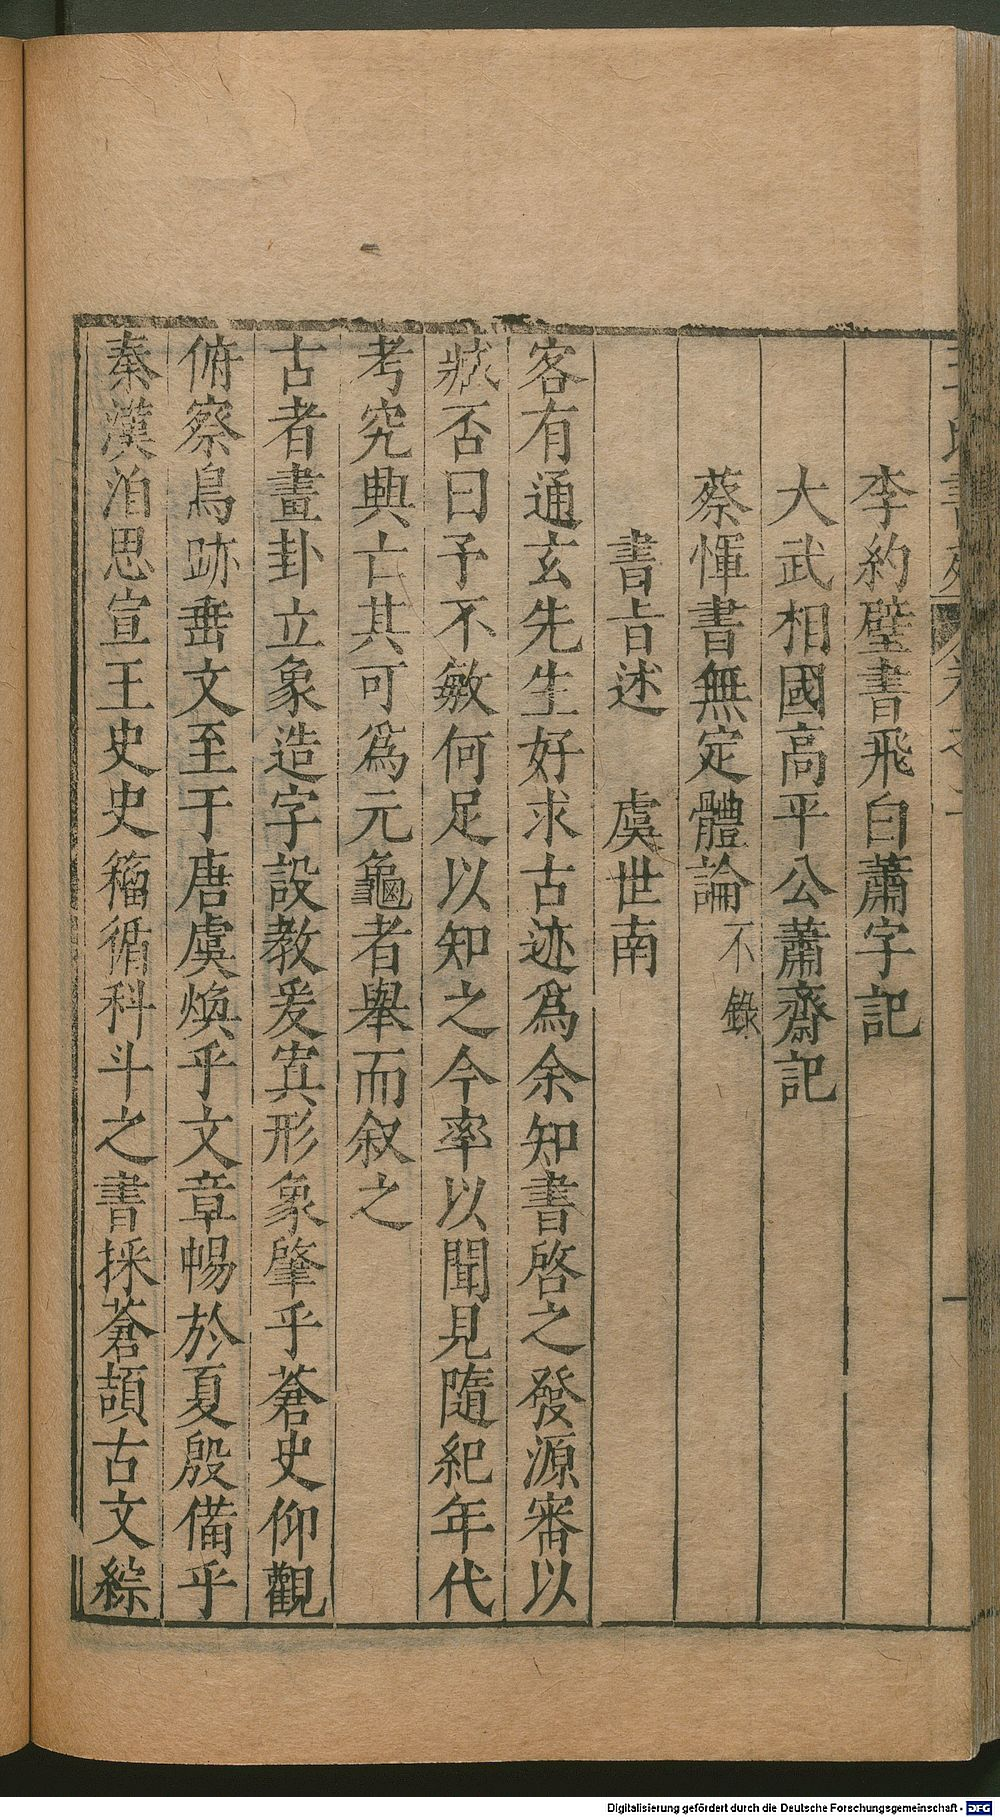 李約壁書飛白蕭字記
大武相國高平公蕭齋記
蔡惲書無定體論不錄
書旨述 虞世南
客有通玄先生好求古迹爲余知書啓之發源審以
臧否曰予不敏何足以知之今率以聞見隨紀年代
考究興亡其可爲元龜者舉而叙之
古者畫卦立象造字設教爰寘形象肇乎蒼史仰觀
俯察鳥跡垂文至于唐虞煥乎文章暢於夏殷備乎
秦漢洎思宣王史史籀循科斗之書採蒼頡古文綜
Digitalisierung gefördert durch die Deutsche Forschungsgemeinschaft - DFG